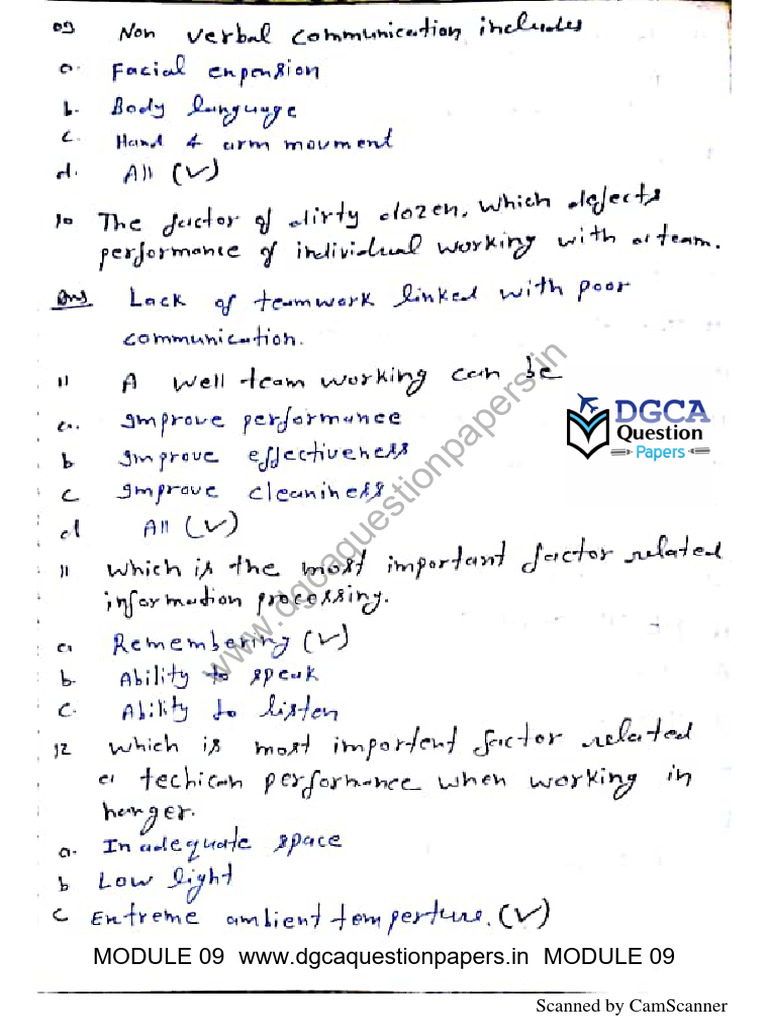 09 Non verbal communication includes
a. Facial enpension
b. Body language
c. Hand & arm movment
d. All (✓)
10 The factor of dirty dozen, which defects
performance of individual working with a team.
Ans Lack of teamwork linked with poor
communication.
11 A well team working can be
a. Improve performance
b Improve effectiveness
c Improve cleaniness
d All (✓)
DGCA
Question
Papers
11 which is the most important factor related
information processing.
a Remembering (✓)
b. Ability to speak
c. Ability to listen
12 which is most important factor related
a techican performance when working in
hanger.
a. Inadequate space
b Low light
c Entreme ambient temperture. (✓)
www.dgcaquestionpapers.in
MODULE 09 www.dgcaquestionpapers.in MODULE 09
Scanned by CamScanner